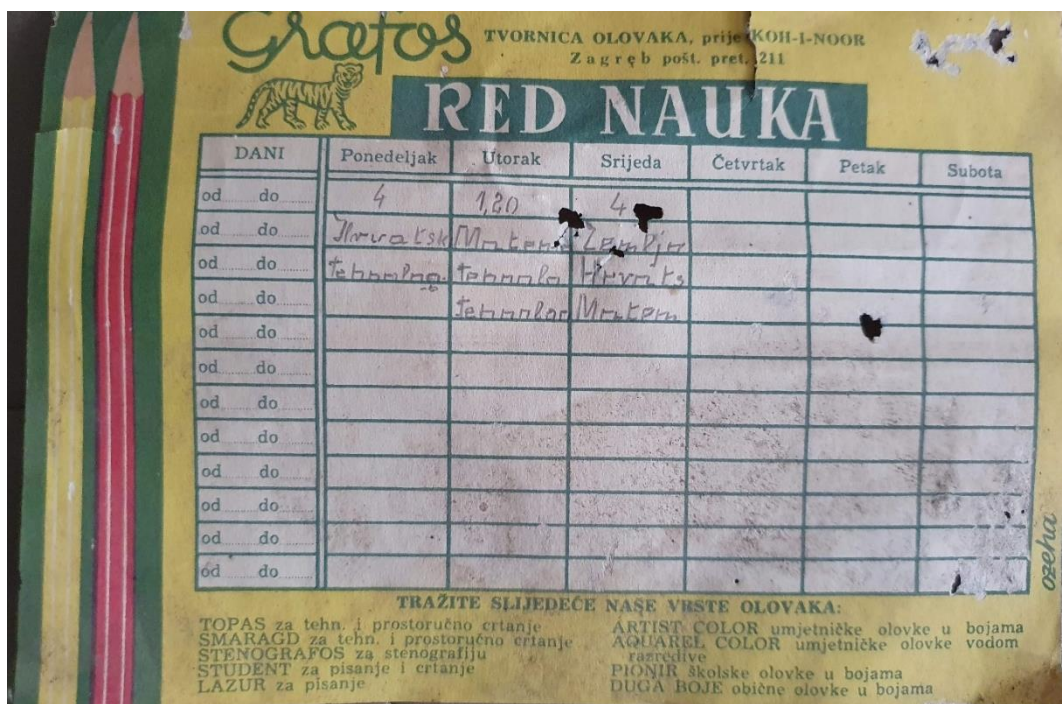 Grafos
TVORNICA OLOVAKA, prije KOH-I-NOOR
Zagreb pošt. pret. 211
RED NAUKA
DANI Ponedeljak Utorak Srijeda Četvrtak Petak Subota
od do 4 1,20 4
od do Hrvatsk Matem Zemljo
od do tehnolog. tehnolo Hrvats
od do Tehnolog Matem
od do
od do
od do
od do
od do
od do
od do
od do
ozeha
TRAŽITE SLIJEDEĆE NAŠE VRSTE OLOVAKA:
TOPAS za tehn. i prostoručno crtanje
SMARAGD za tehn. i prostoručno crtanje
STENOGRAFOS za stenografiju
STUDENT za pisanje i crtanje
LAZUR za pisanje
ARTIST COLOR umjetničke olovke u bojama
AQUAREL COLOR umjetničke olovke vodom
razredive
PIONIR školske olovke u bojama
DUGA BOJE obične olovke u bojama